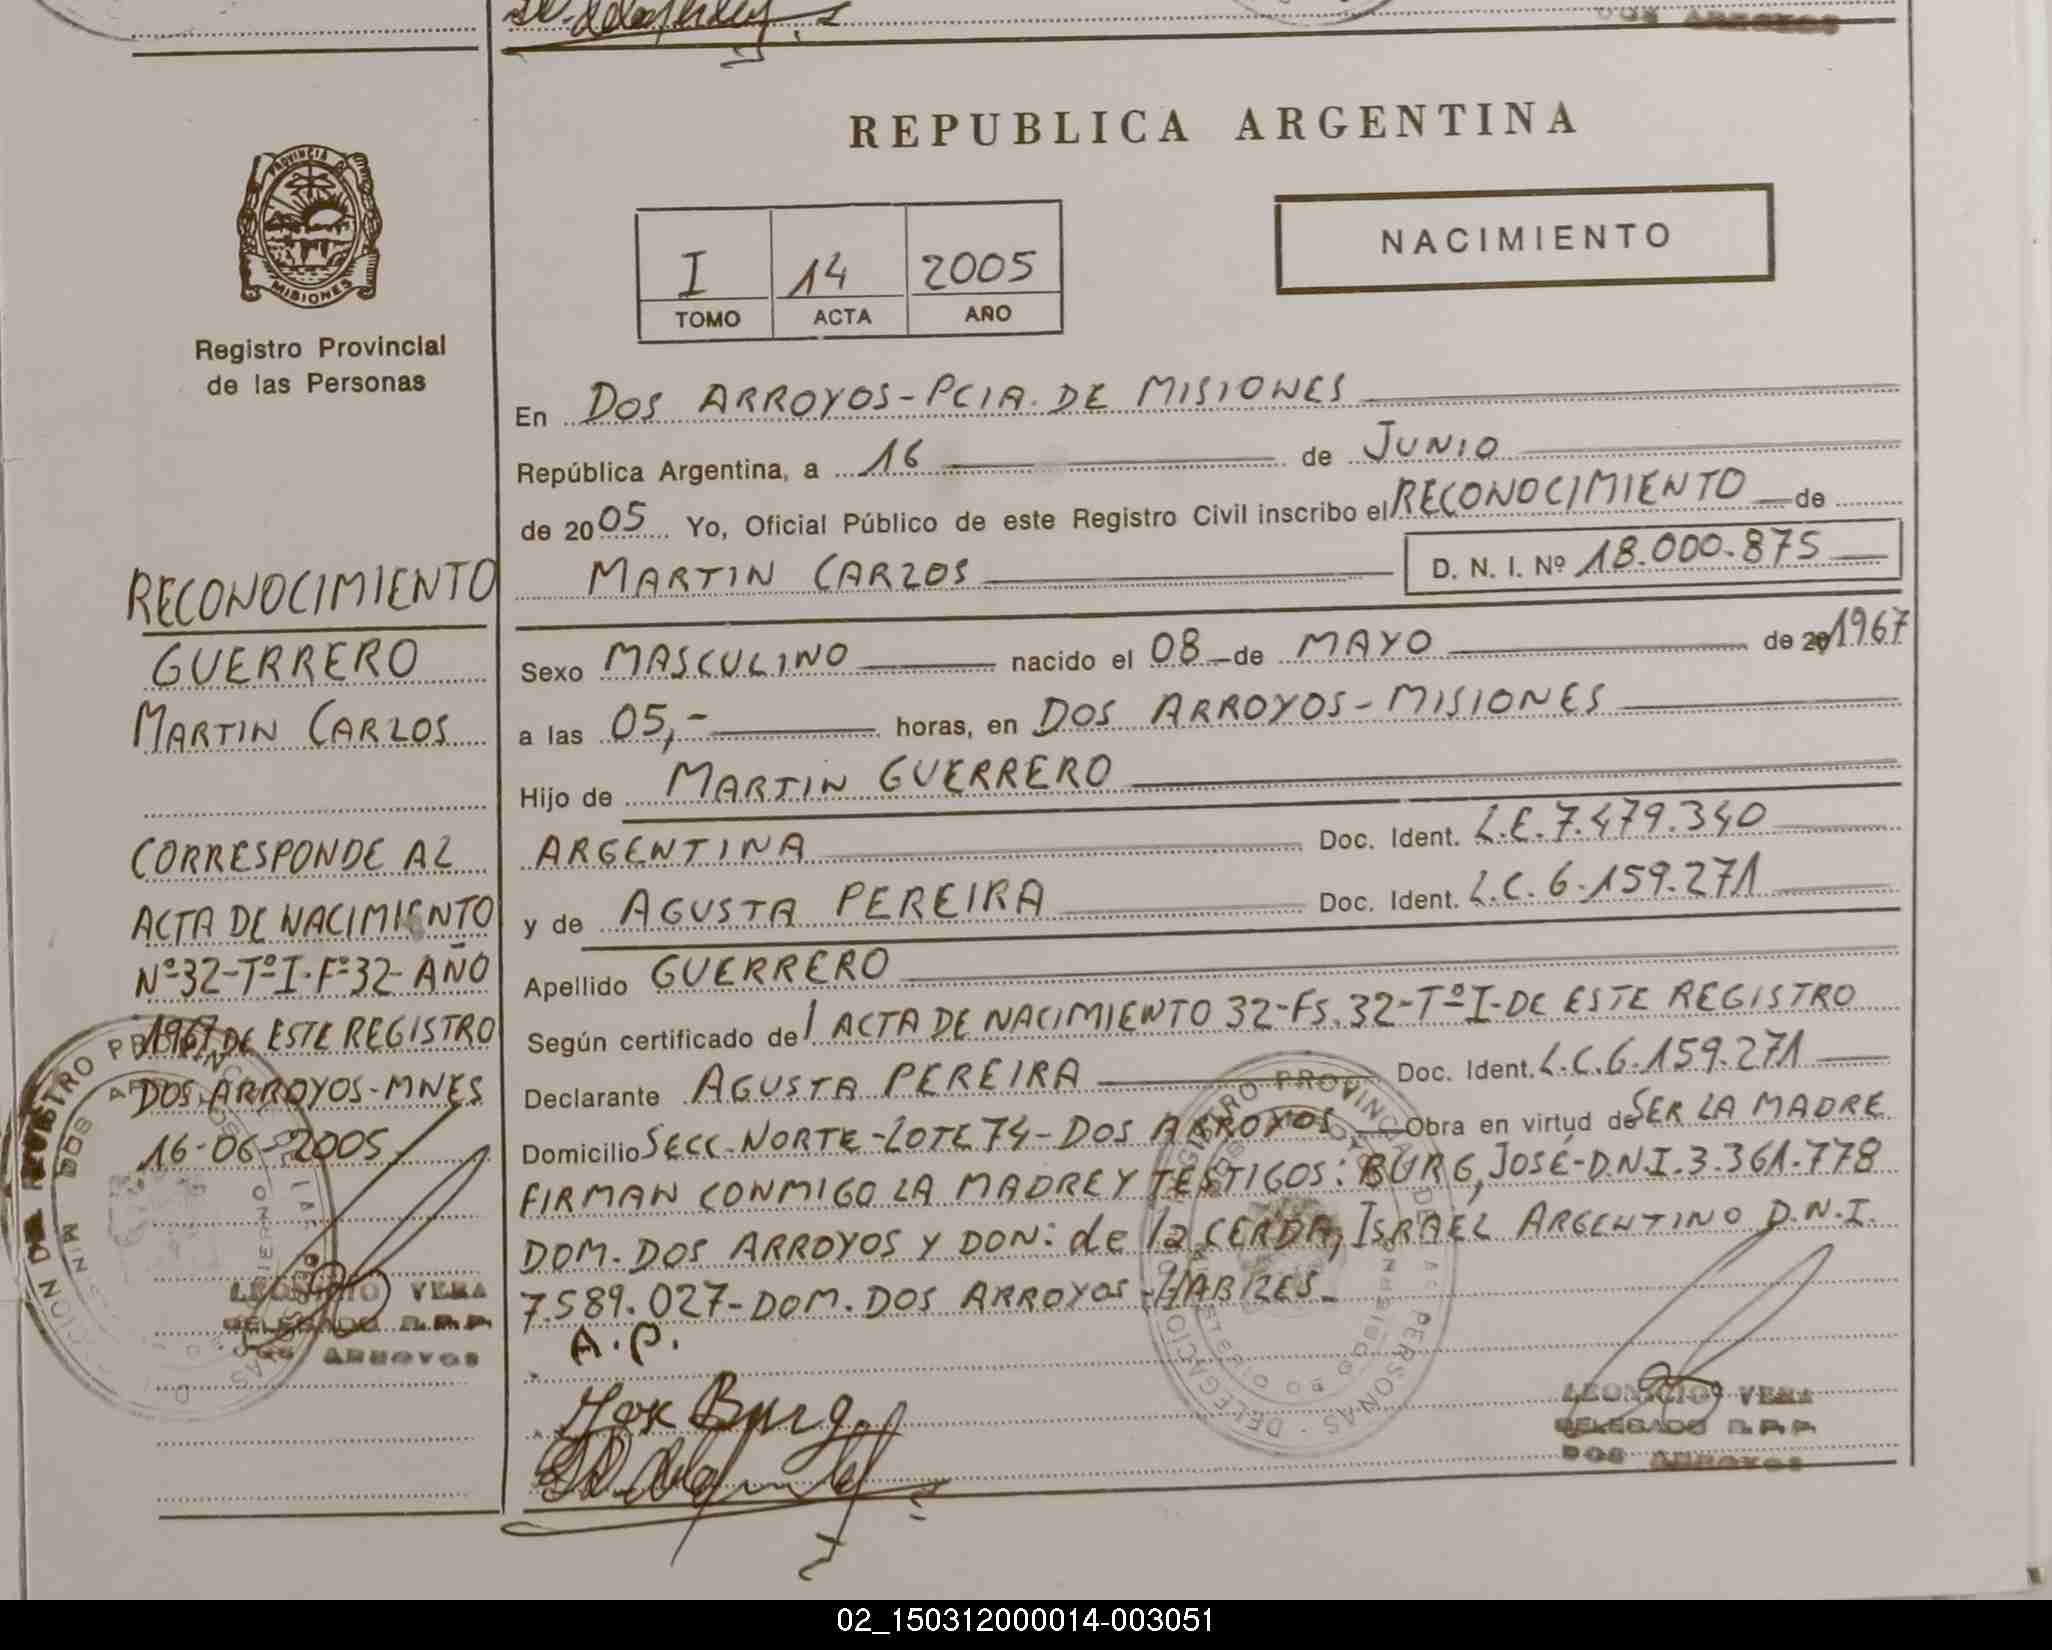 REPUBLICA ARGENTINA
PROVINCIA DE
MISIONES
Registro Provincial
de las Personas
NACIMIENTO
I 14 2005
TOMO ACTA AÑO
En DOS ARROYOS-PCIA. DE MISIONES
República Argentina, a 16 de JUNIO
de 2005 Yo, Oficial Público de este Registro Civil inscribo el RECONOCIMIENTO de
MARTIN CARLOS D. N. I. Nº 18.000.875
Sexo MASCULINO nacido el 08 de MAYO de 20 1967
a las 05,- horas, en DOS ARROYOS-MISIONES
Hijo de MARTIN GUERRERO
ARGENTINA Doc. Ident. L.E.7.479.340
y de AGUSTA PEREIRA Doc. Ident. L.C.6.159.271
Apellido GUERRERO
Según certificado de l ACTA DE NACIMIENTO 32-Fs.32-TºI-DE ESTE REGISTRO
Declarante AGUSTA PEREIRA Doc. Ident. L.C.6.159.271
Domicilio SECC-NORTE-LOTE 74-DOS ARROYOS Obra en virtud de SER LA MADRE
FIRMAN CONMIGO LA MADRE Y TESTIGOS: BURG, JOSÉ-D.N.I.3.361.778
DOM. DOS ARROYOS Y DON: de la CERDA, ISRAEL ARGENTINO D.N.I.
7.589.027-DOM. DOS ARROYOS-HABILES-
A.P.
José Burg
LEONICIO VERA
DELEGADO R.P.P.
DOS ARROYOS
RECONOCIMIENTO
GUERRERO
MARTIN CARLOS
CORRESPONDE AL
ACTA DE NACIMIENTO
Nº32-TºI-Fº32-AÑO
1967 DE ESTE REGISTRO
DOS ARROYOS-MNES
16-06-2005
LEONICIO VERA
DELEGADO R.P.P.
DOS ARROYOS
02_150312000014-003051